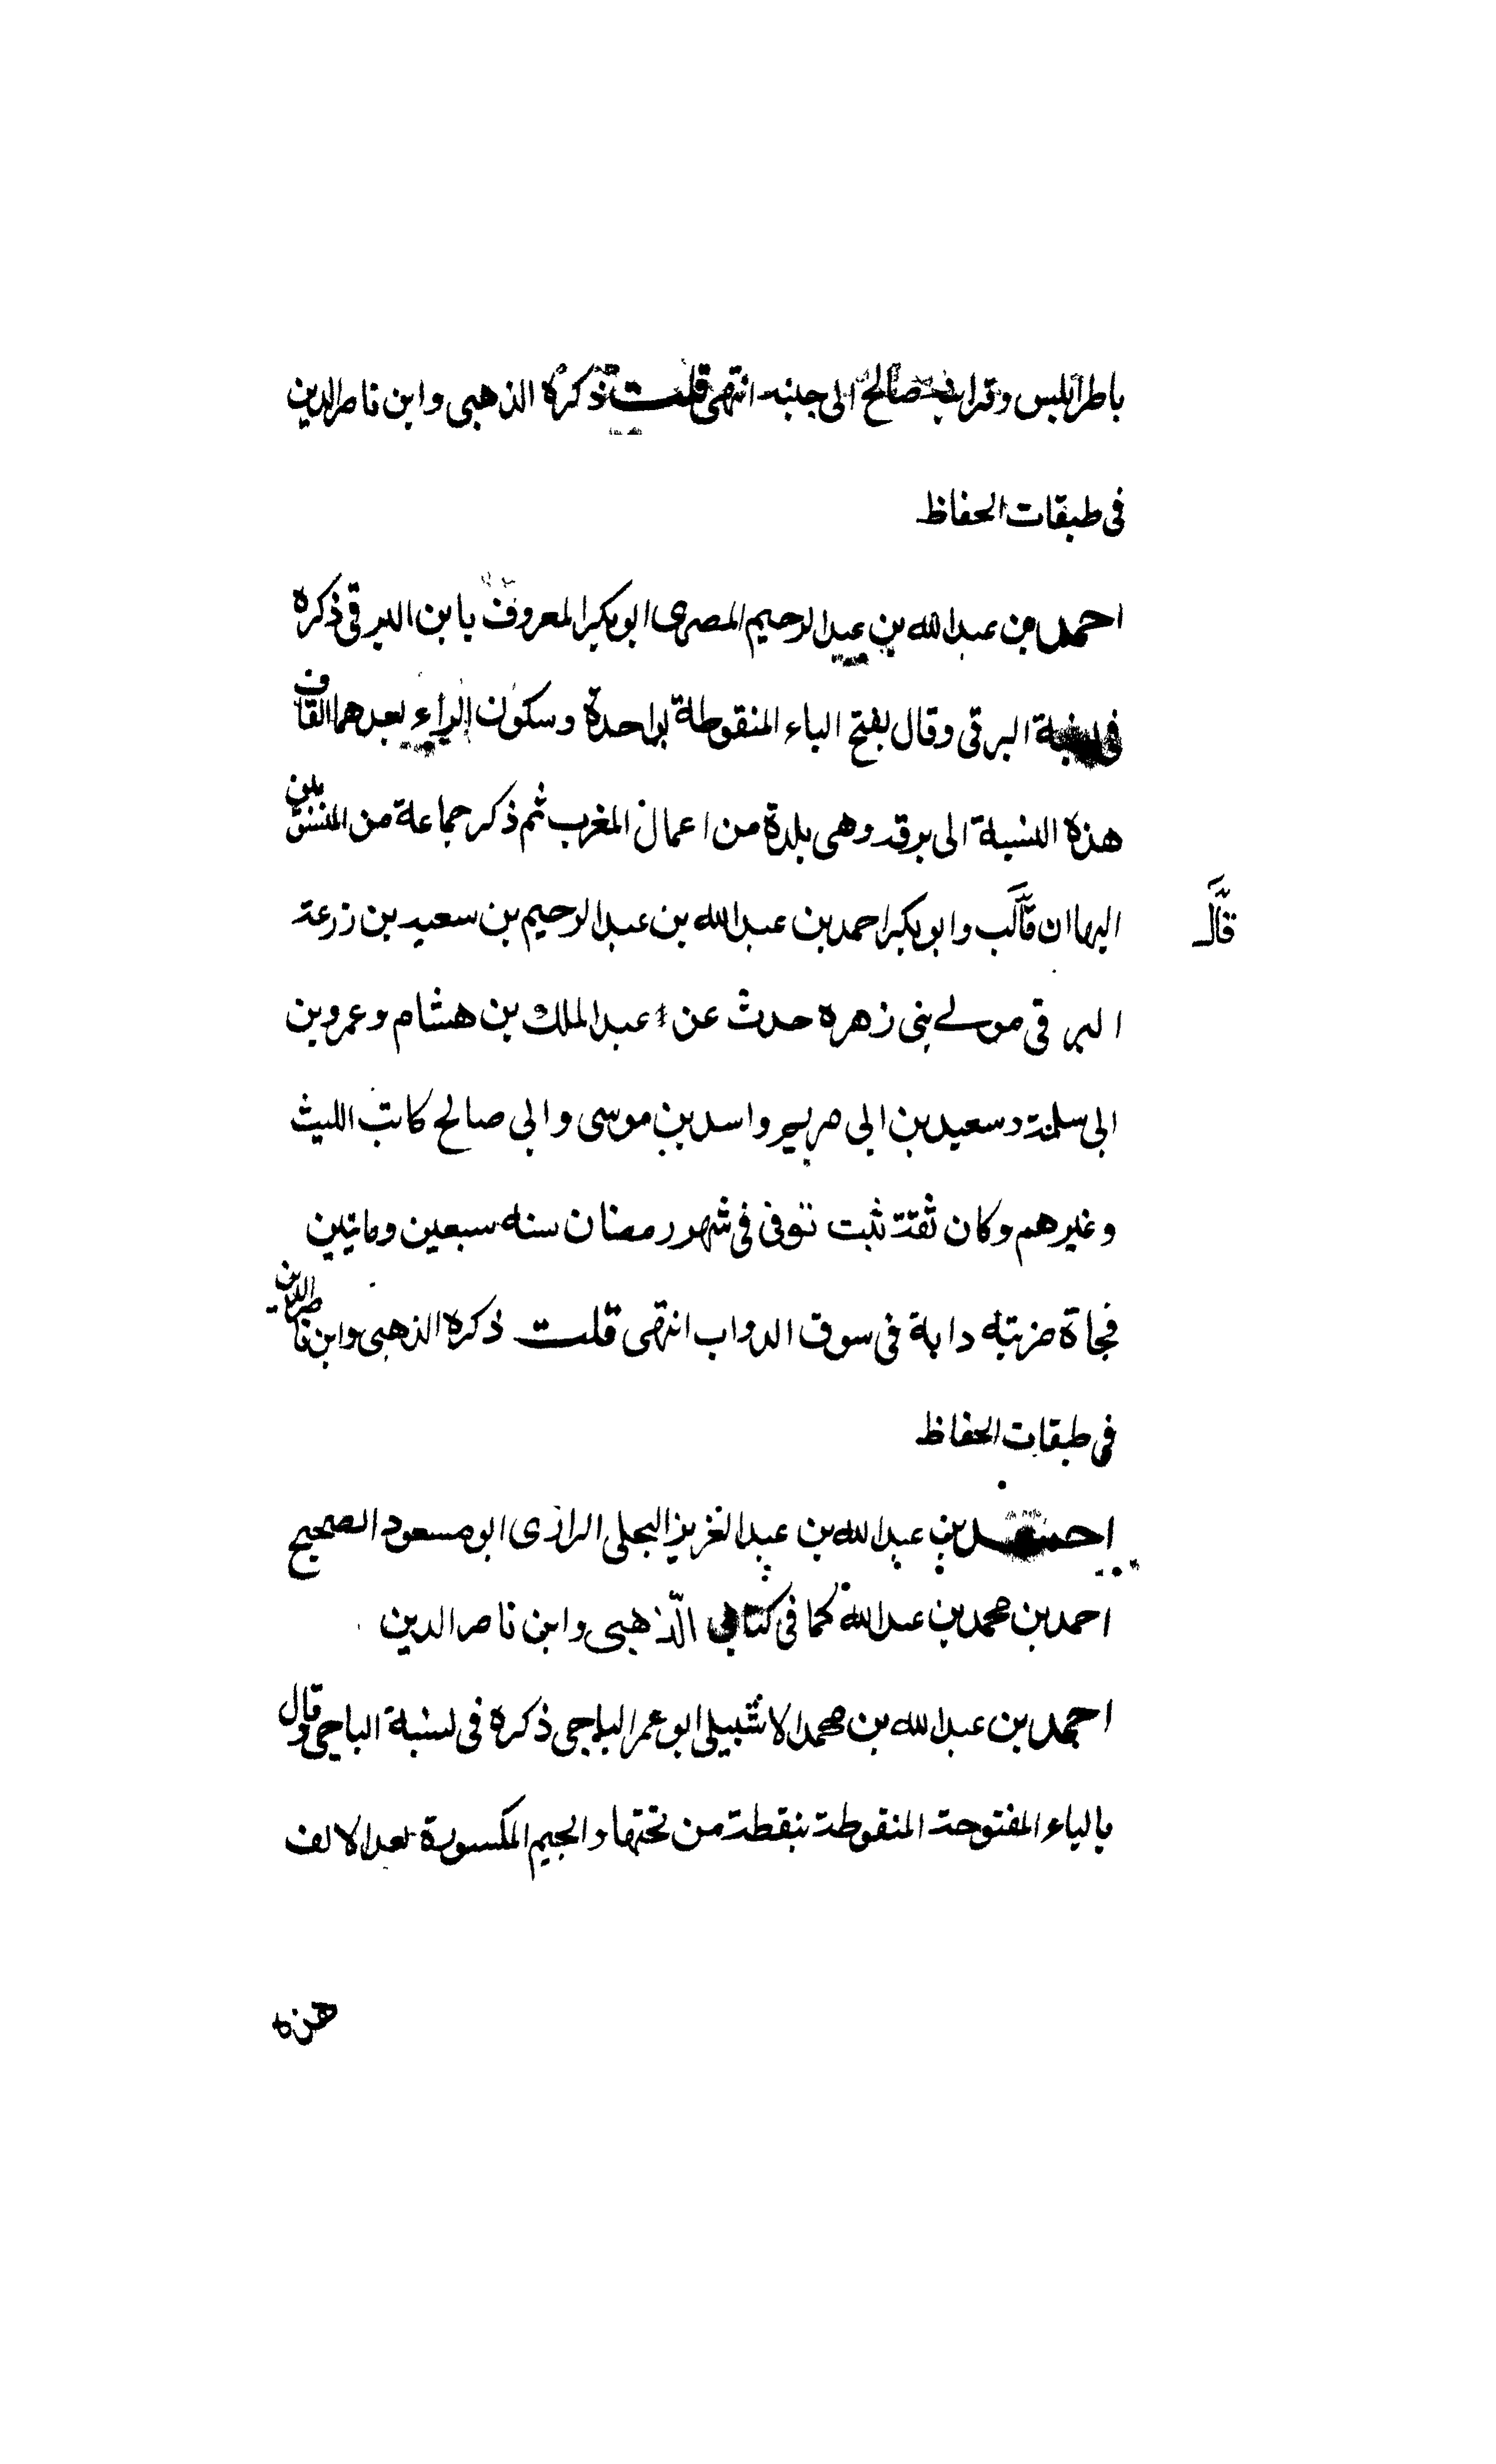 باطرابلس وقبرابنه صالح الى جنبه انتهى قلت ذكره الذهبي وابن ناصر الدين
في طبقات الحفاظ
احمد بن عبد الله بن عبد الرحيم المصرى ابو بكر المعروف بابن البرقي ذكره
في نسبة البرقي وقال بفتح الباء المنقوطة بواحدة وسكون الراء بعدهما القاف
هذه النسبة الى برقه وهي بلدة من اعمال المغرب ثم ذكر جماعة من المنسوبين
اليها ان قال وابو بكر احمد بن عبد الله بن عبد الرحيم بن سعيد بن زرعة
قال
البرقي مولے بنى زهره حدث عن عبد الملك بن هشام وعمرو بن
ابى سلمة وسعيد بن ابى مريم واسد بن موسى وابى صالح كاتب الليث
وغيرهم وكان ثقة ثبت توفى فى شهر رمضان سنه سبعين وماتين
فجاة ضربته دابة فى سوق الدواب انتهى قلت ذكره الذهبى وابن ناصر الدين
في طبقات الحفاظ
احمد بن عبد الله بن عبد العزيز البجلى الرازى ابو مسعود الصحيح
احمد بن محمد بن عبد الله كما فى كتابى الذهبى وابن ناصر الدين
احمد بن عبد الله بن محمد الاشبيلى ابو عمر الباجى ذكره فى نسبة الباجى وقال
بالباء المفتوحة المنقوطة بنقطة من تحتها والجيم المكسورة بعد الالف
هذه